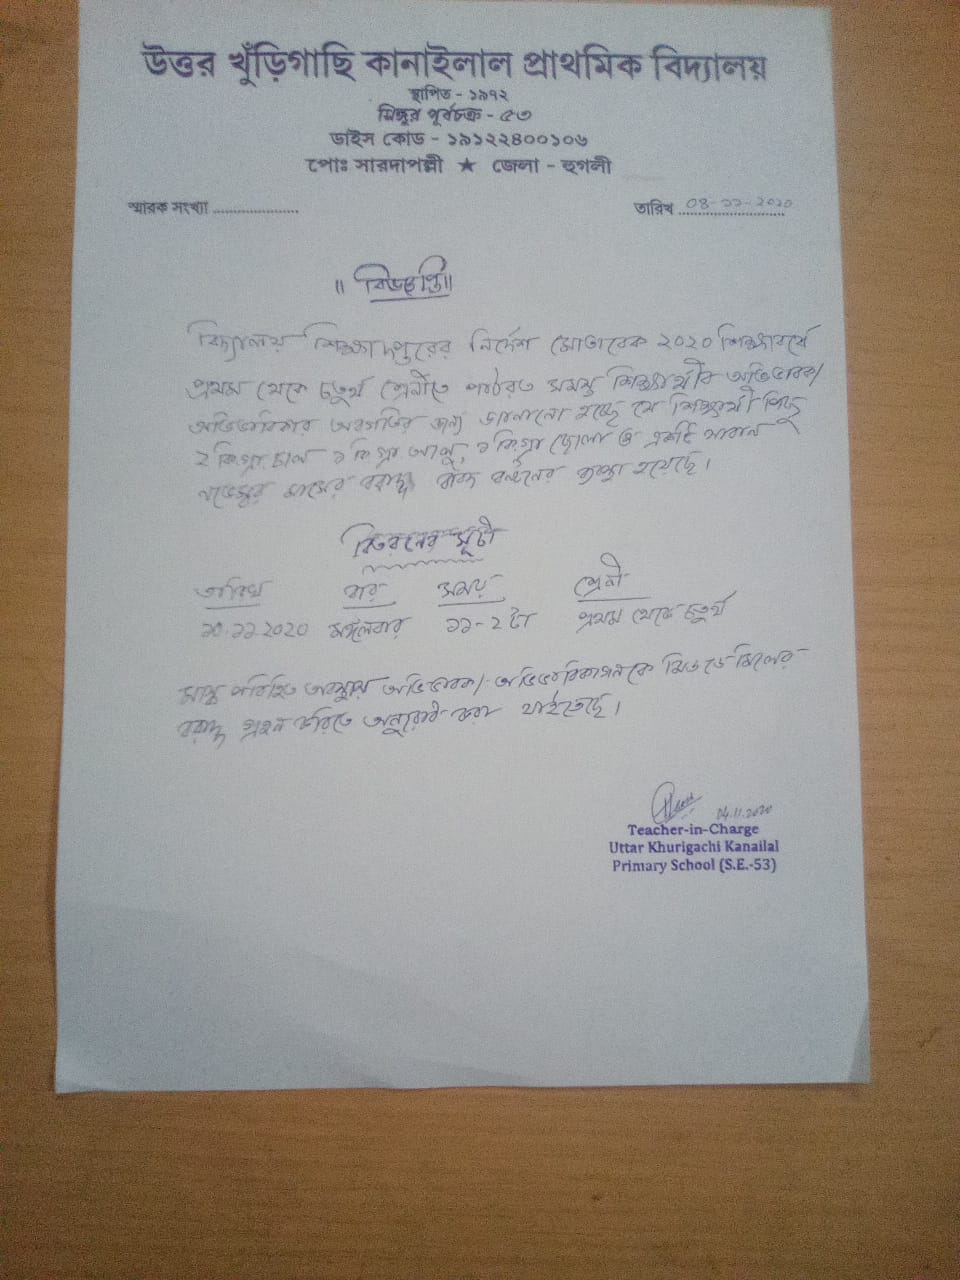 উত্তর খুঁড়িগাছি কানাইলাল প্রাথমিক বিদ্যালয়
স্থাপিত - ১৯৭২
সিঙ্গুর পূর্বচক্র - ৫৩
ডাইস কোড - ১৯১২২৪০০১০৬
পোঃ সারদাপল্লী ★ জেলা - হুগলী
স্মারক সংখ্যা ..................... তারিখ 04-১১-২০২০
॥ বিজ্ঞপ্তি॥
বিদ্যালয় শিক্ষাদপ্তরের নির্দেশ মোতাবেক ২০২০ শিক্ষাবর্ষে
প্রথম থেকে চতুর্থ শ্রেণীতে পাঠরত সমস্ত শিক্ষার্থীর অভিভাবক/
অভিভাবিকার অবগতির জন্য জানানো হচ্ছে যে শিক্ষার্থী পিছু
২ কিগ্রা চাল ১ কিগ্রা আলু, ১ কিগ্রা ছোলা ও একটি সাবান
নভেম্বর মাসের বরাদ্দ বাবদ বন্টনের ব্যবস্থা হয়েছে।
বিতরনের সূচী
তারিখ বার সময় শ্রেণী
১০.১১.২০২০ মঙ্গলবার ১১-২ টা প্রথম থেকে চতুর্থ
মাস্ক পরিহিত অবস্থায় অভিভাবক/অভিভাবিকাগনকে মিড ডে মিলের
বরাদ্দ গ্রহন করিতে অনুরোধ করা যাইতেছে।
04.11.2020
Teacher-in-Charge
Uttar Khurigachi Kanailal
Primary School (S.E.-53)